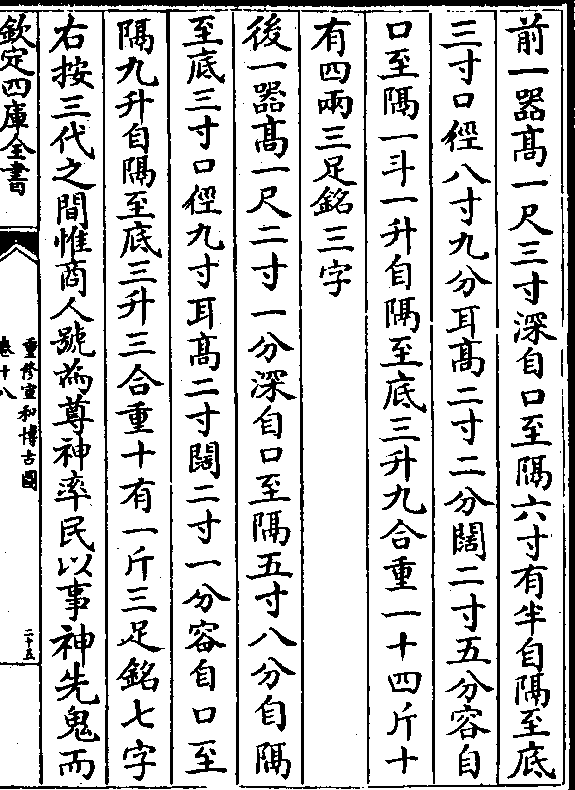 前一器髙一尺三寸深自口至隔六寸有半自隔至底
三寸口徑八寸九分耳髙二寸二分闊二寸五分容自
口至隔一斗一升自隔至底三升九合重一十四斤十
有四兩三足銘三字
後一器髙一尺二寸一分深自口至隔五寸八分自隔
至底三寸口徑九寸耳髙二寸闊二寸一分容自口至
隔九升自隔至底三升三合重十有一斤三足銘七字
右按三代之間惟商人號為尊神率民以事神先鬼而
欽定四庫全書
重修宣和博古圖
卷十八
二十五